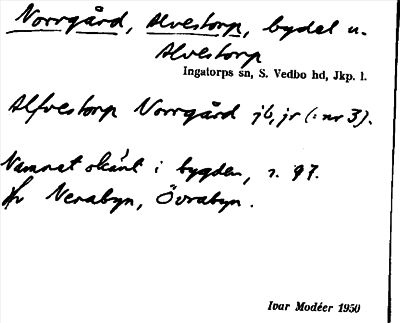 Norrgård, Alvestorp, bydel u.
Alvestorp
Ingatorps sn, S. Vedbo hd, Jkp. l.
Alfvestorp Norrgård jb, jr (: nr 3).
Namnet okänt i bygden, r. 97.
Jfr Nerabyn, Övrabyn.
Ivar Modéer 1950